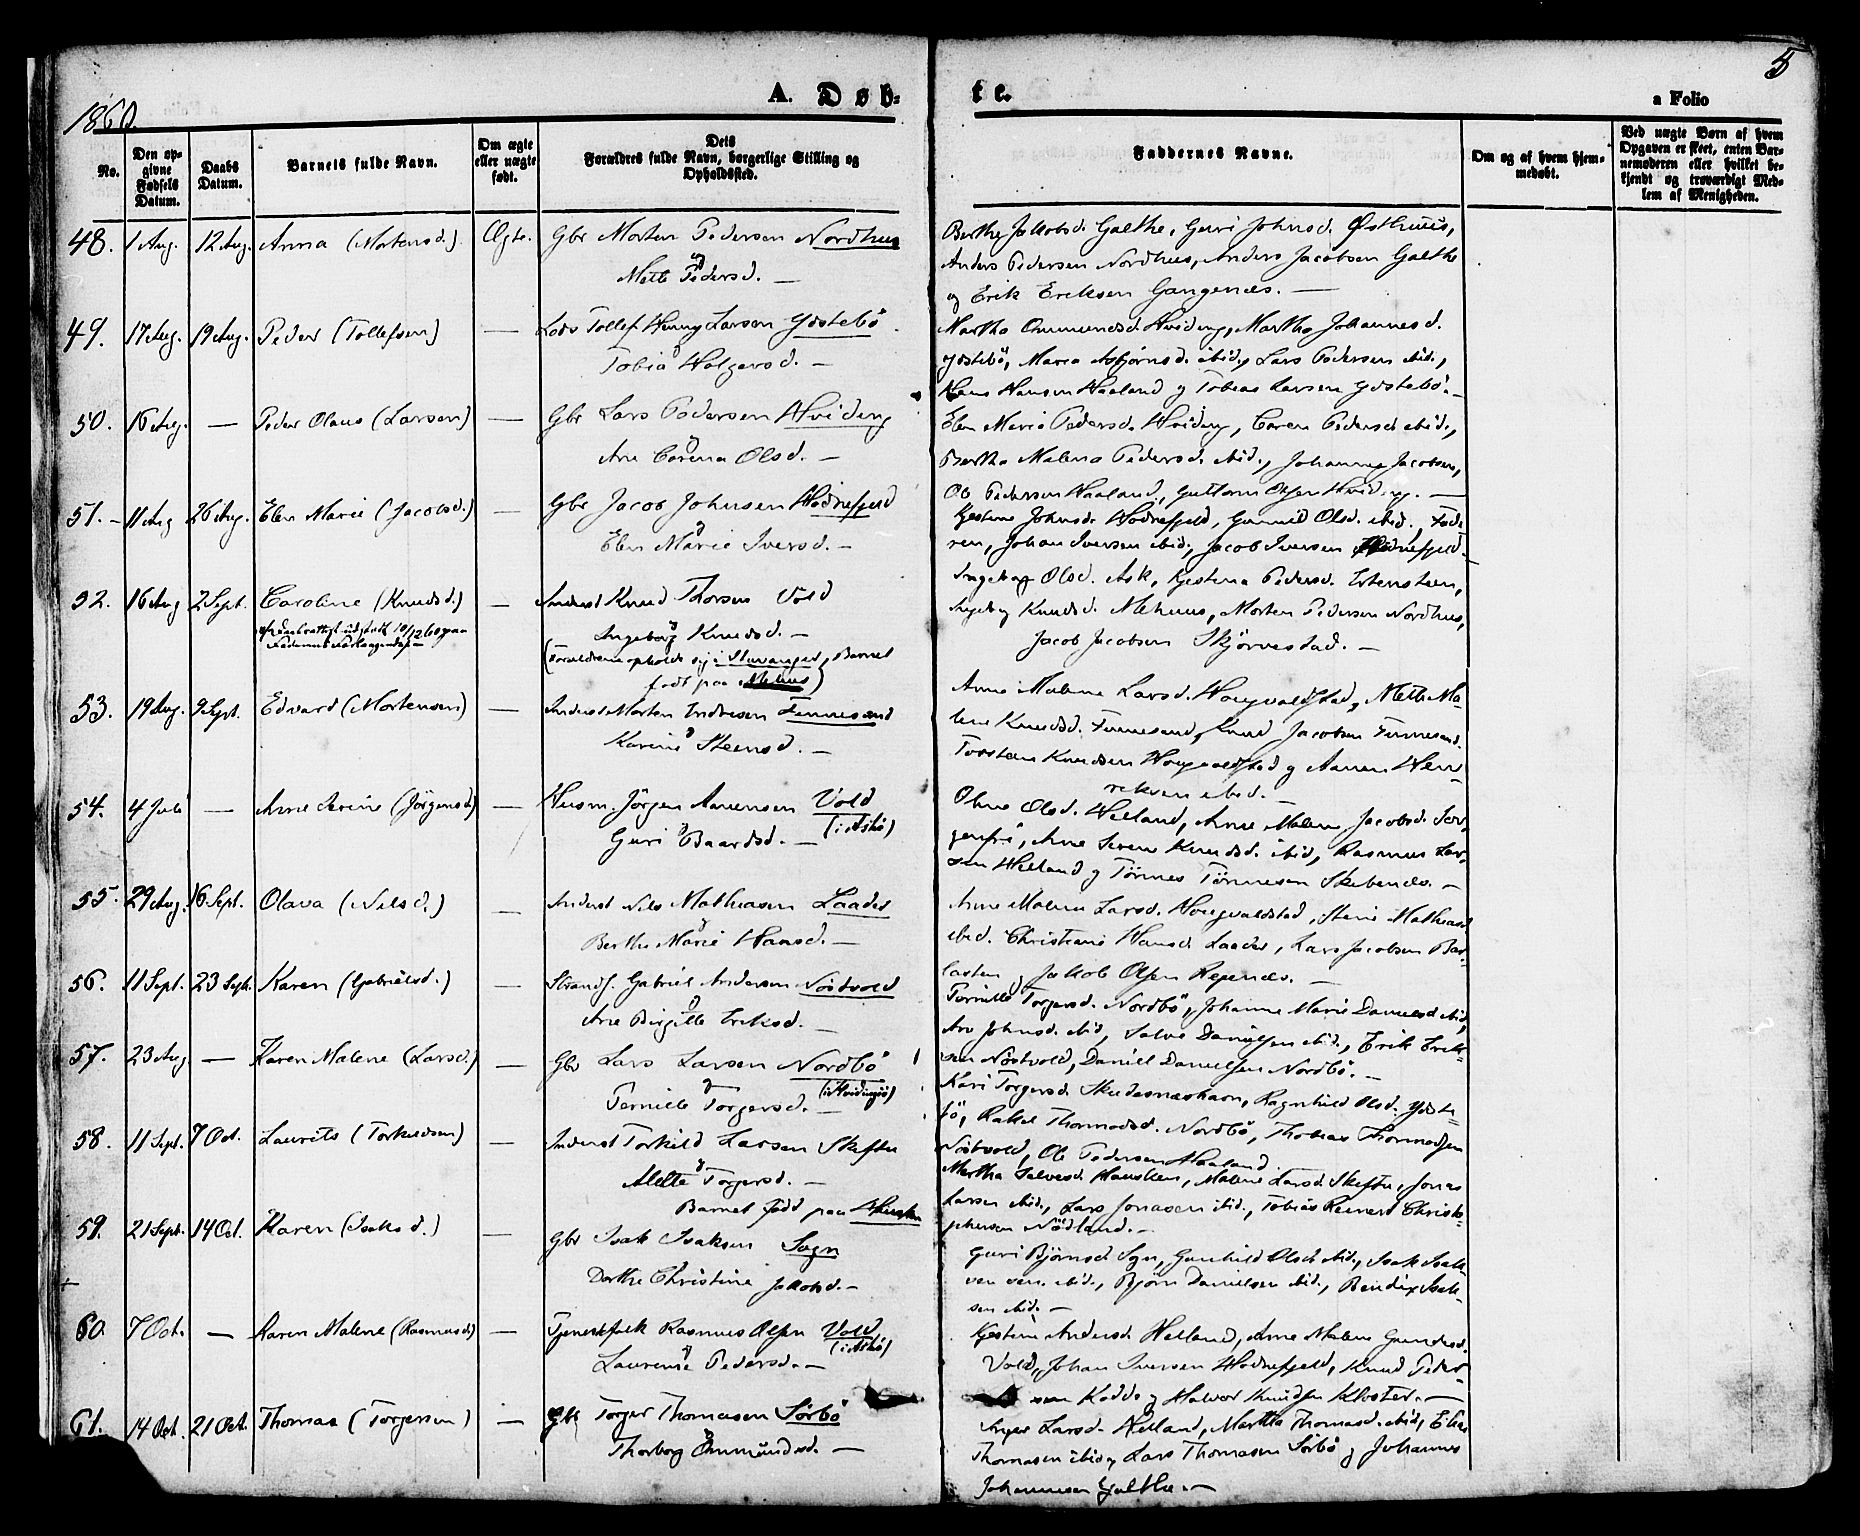 1860.
A. Døb-
te.
a Folio
5
No.
Den op-
givne
Fødsels
Datum.
Daabs
Datum.
Barnets fulde Navn.
Om ægte
eller uægte
født.
Dets
Forældres fulde Navn, borgerlige Stilling og
Opholdssted.
Faddernes Navne.
Om og af hvem hjem-
medøbt.
Ved uægte Børn af hvem
Opgaven er skeet, enten Bar-
nemoderen eller hvilket be-
kjendt og troværdigt Med-
lem af Menigheden.
48. 1 Aug. 12 Aug. Anna (Mortensd.) Ægte. Gbr Morten Pedersen Nordhus
Mette Pedersd. —
Berthe Jakobsd. Galthe, Guri Johnsd. Østhuus,
Anders Pedersen Nordhus, Anders Jacobsen Galthe
og Erik Eriksen Gangenæs. —
49. 17 Aug. 19 Aug. Peder (Tollefsen) — Lods Tollef Henng Larsen Ydstebö.
Tobia Holgersd. —
Martha Ommundsd. Hviding, Martha Johannesd.
Ydstebö, Maria Asbjørnsd. ibid., Lars Pedersen ibid.,
Hans Hansen Haaland og Tobias Larsen Ydstebö. —
50. 16 Aug. — Peder Olaus (Larsen) — Gbr Lars Pedersen Hviding
Ane Carina Olsd. —
Elen Marie Pedersd. Hviding, Caren Pedersd. ibid.,
Bertha Malena Pedersd. ibid., Johannes Jacobsen,
Ole Pedersen Haaland, Guttorm Olsen Hviding. —
51. — 11 Aug 26 Aug. Elen Marie (Jacobsd.) — Gbr Jacob Johnsen Hodnefjeld
Elen Marie Iversd. —
Gjestine Johnsd. Hodnefjeld, Gunnild Olsd. ibid., Fade-
ren, Johan Iversen ibid., Jacob Iversen Hodnefjeld.
52. 16 Aug 2 Sept. Caroline (Knudsd.) — Inderst Knud Thorsen Vold
Ingeborg Knudsd. —
(Forældrene opholde sig i Stavanger, Barnet
født paa Mehus)
Ingeborg Olsd. Ask, Gjestina Pedersd. Eltensteen,
Ingeborg Knudsd. Mehuus, Morten Pedersen Nordhus,
Jacob Jacobsen Skjørvestad. —
53. 19 Aug. 9 Sept. Edvard (Mortensen) — Inderst Morten Endresen Finnesand
Karine Steensd. —
Anne Malene Larsd. Hougvaldstad, Mette Ma-
lene Knudsd. Finnesand, Knud Jacobsen Finnesand.
Torsten Knudsen Hougvaldstad og Aanen Hen-
riksen ibid. —
54. 4 Juli — Anne Serine (Jörgensd.) — Husm. Jörgen Aanensen Vold
Guri Baardsd. — (i Askö)
Oline Olsd. Helland, Anne Malene Jacobsd. Sor-
genfri, Ane Serene Knudsd. ibid., Rasmus Lar-
sen Helland og Tönnes Tönnesen Skibenæs. —
55. 29 Aug. 16 Sept. Olava (Nilsd.) — Inderst Nils Mathiasen Laader
Berthe Marie Hansd. —
Anne Malene Larsd. Hougvaldstad, Stine Mathiasd.
ibid. Christiane Hansd. Laader, Lars Jacobsen Bar-
lasten og Jakob Olsen Regenæs. —
56. 11 Sept. 23 Sept. Karen (Gabrielsd.) — Strands. Gabriel Andersen Nöstvold
Ane Birgitte Eriksd. —
Pernille Torgersd. Nordbö, Johanne Marie Danielsd. ibid.,
Ane Johnsd. ibid., Salve Danielsen ibid., Erik Erik-
sen Nöstvold, Daniel Danielsen Nordbö. —
57. 23 Aug — Karen Malene (Larsd.) — Gbr Lars Larsen Nordbö
Pernille Torgersd. — (i Hvidingsö)
Kari Torgersd. Skudesneshavn, Ragnhild Olsd. Ydste-
bö, Rakel Thormodsd. Nordbö, Thobias Thormodsen
Nöstvold, Ole Pedersen Haaland
58. 11 Sept. 7 Oct. Laurits (Torkildsen) — Inderst Torkild Larsen Skeftu
Mette Torgersd. —
Barnet född paa Hausken
Martha Salvesd. Hausken, Malene Larsd. Skeftu, Jonas
Larsen ibid., Lars Jonasen ibid., Tobias Reinert Christo-
phersen Nödland. —
59. 21 Sept. 14 Oct. Karen (Isaksd.) — Gbr Isak Isaksen Sogn
Dorthe Christine Jakobsd. —
Guri Björnsd. Sogn, Gunhild Olsd. ibid., Isak Isak-
sen sen. ibid., Björn Danielsen ibid., Bendix Isak-
sen ibid. —
60. 7 Oct. — Karen Malene (Rasmusd.) — Tjenestfolk Rasmus Olsen Vold
Laurense Pedersd. — (i Askö)
Gjestine Andersd. Helland, Anne Malene Gundersd.
Vold, Johan Iversen Hodnefjeld, Knud Peder-
sen Hodde og Halvor Knudsen Kloster. —
61. 14 Oct. 21 Oct. Thomas (Torgersen) — Gbr Torger Thomasen Sörbö
Thorborg Ommundsd. —
Inger Larsd. Helland, Martha Thomasd. ibid., Elias
Thomasen ibid., Lars Thomasen Sörbö og Johannes
Johannesen Galthe. —